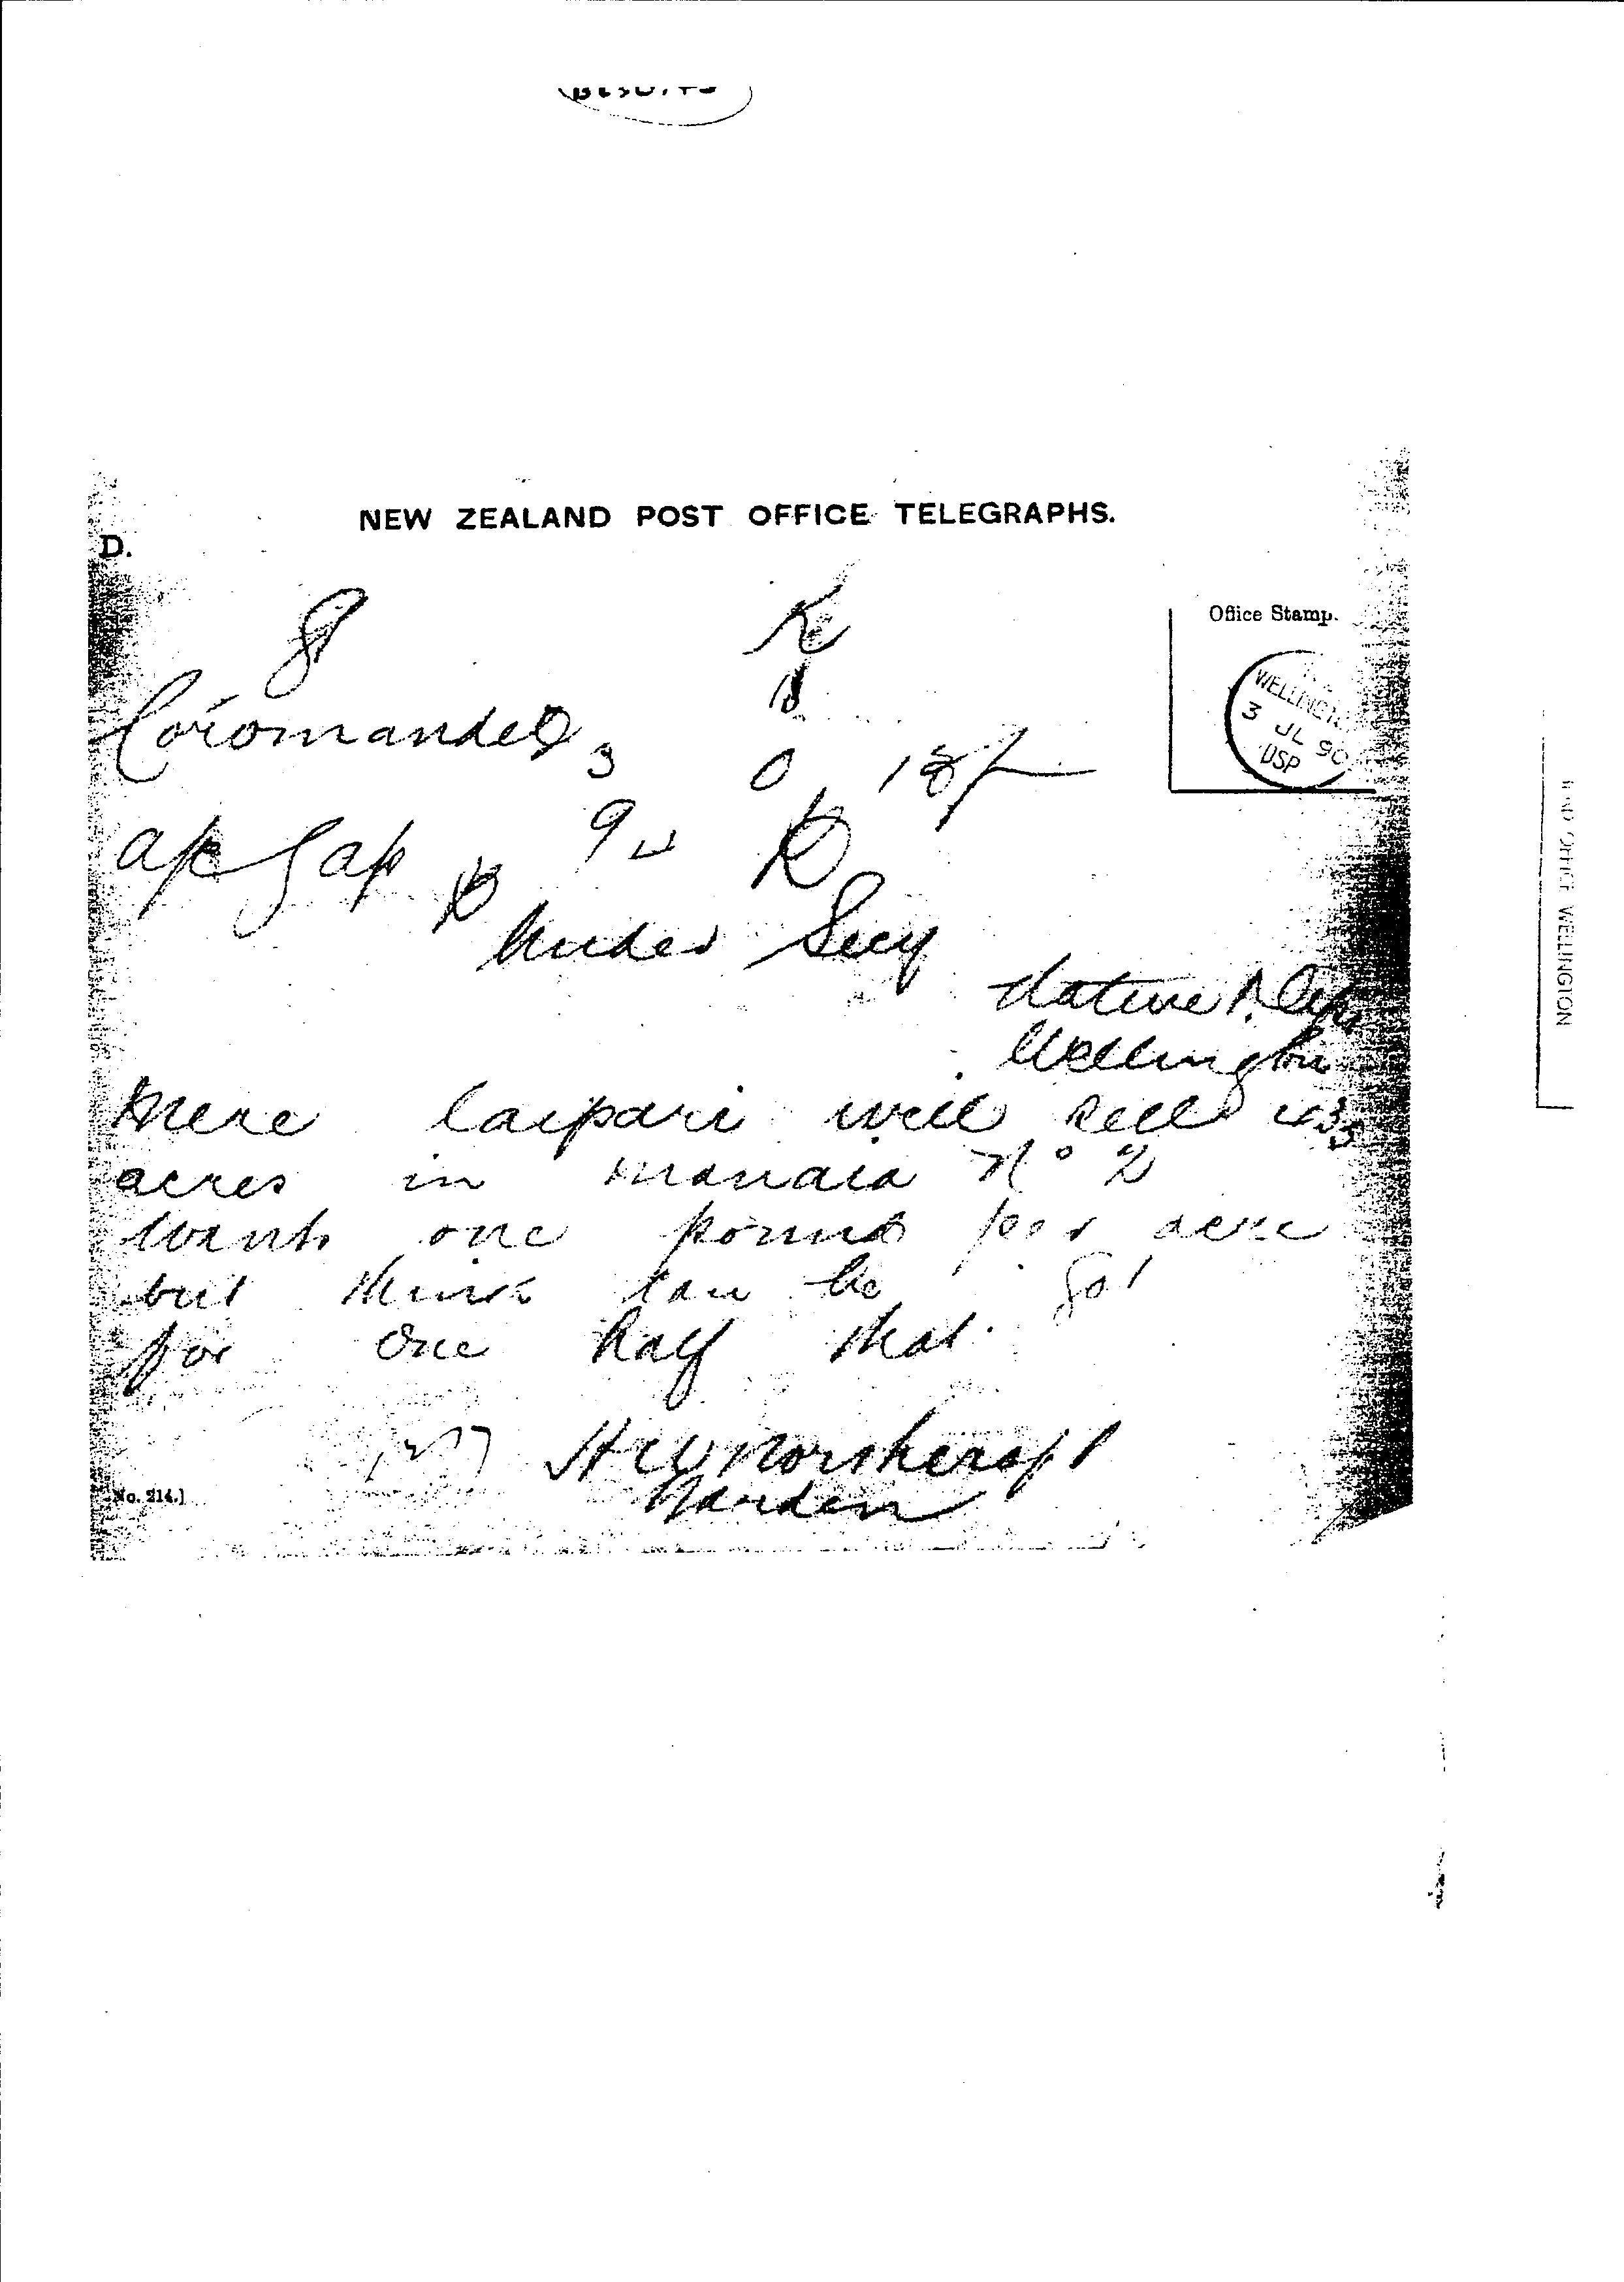 NEW ZEALAND POST OFFICE TELEGRAPHS.
D.
Office Stamp.
WELLINGTN
3 JL 90
USP
Coromandel 3 0 18/
9
Under Secy
Native Dep
Wellington
Mere Caspari will sell
acres in Manaia No 2
wants one pound per acre
but think can be got
for one half that.
H W Northcroft
Warden
No. 214.]
HEAD OFFICE WELLINGTON